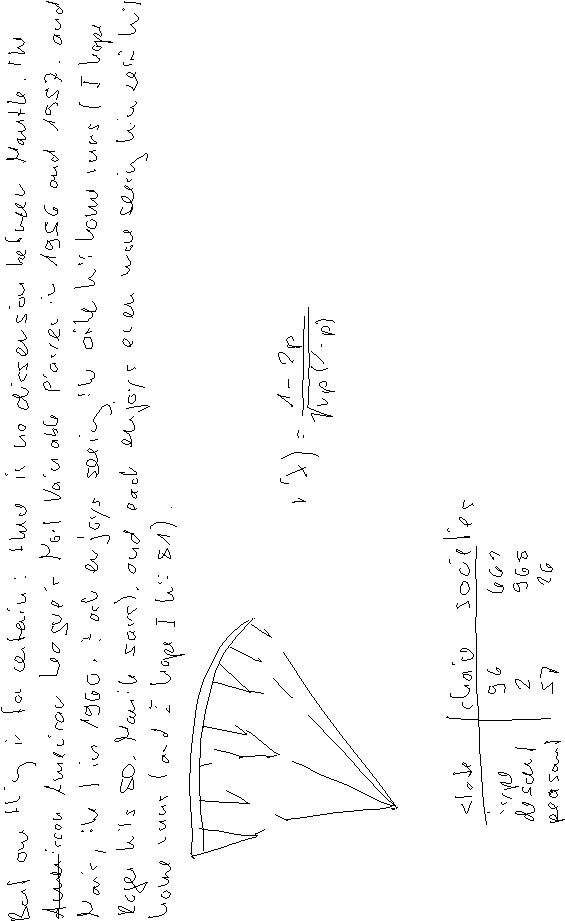 But one thing is for certain: there is no dissension between Mantle, the
American League's Most Valuable Player in 1956 and 1957, and
Maris, the 1 in 1960. Each enjoys seeing the other hit home runs (I hope
Roger hits 80, Mantle says), and each enjoys even more seeing him self hit
home runs (and I hope I hit 81).
v(X) = 1-2p / √np(1-p)
societies
96
2 968
peasant 57 26